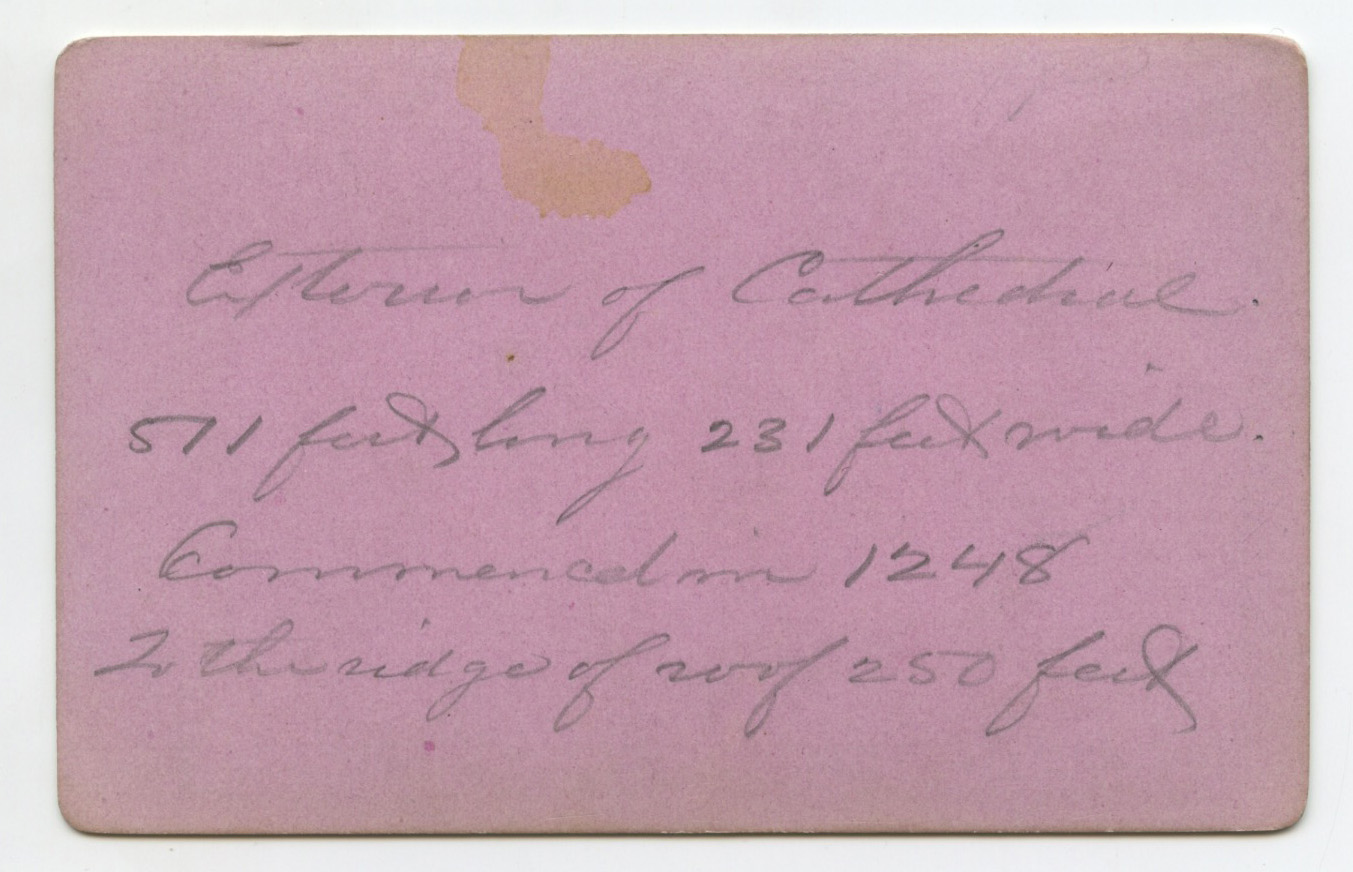 Exterior of Cathedral.
511 feet long 231 feet wide.
Commenced in 1248
To the ridge of roof 250 feet